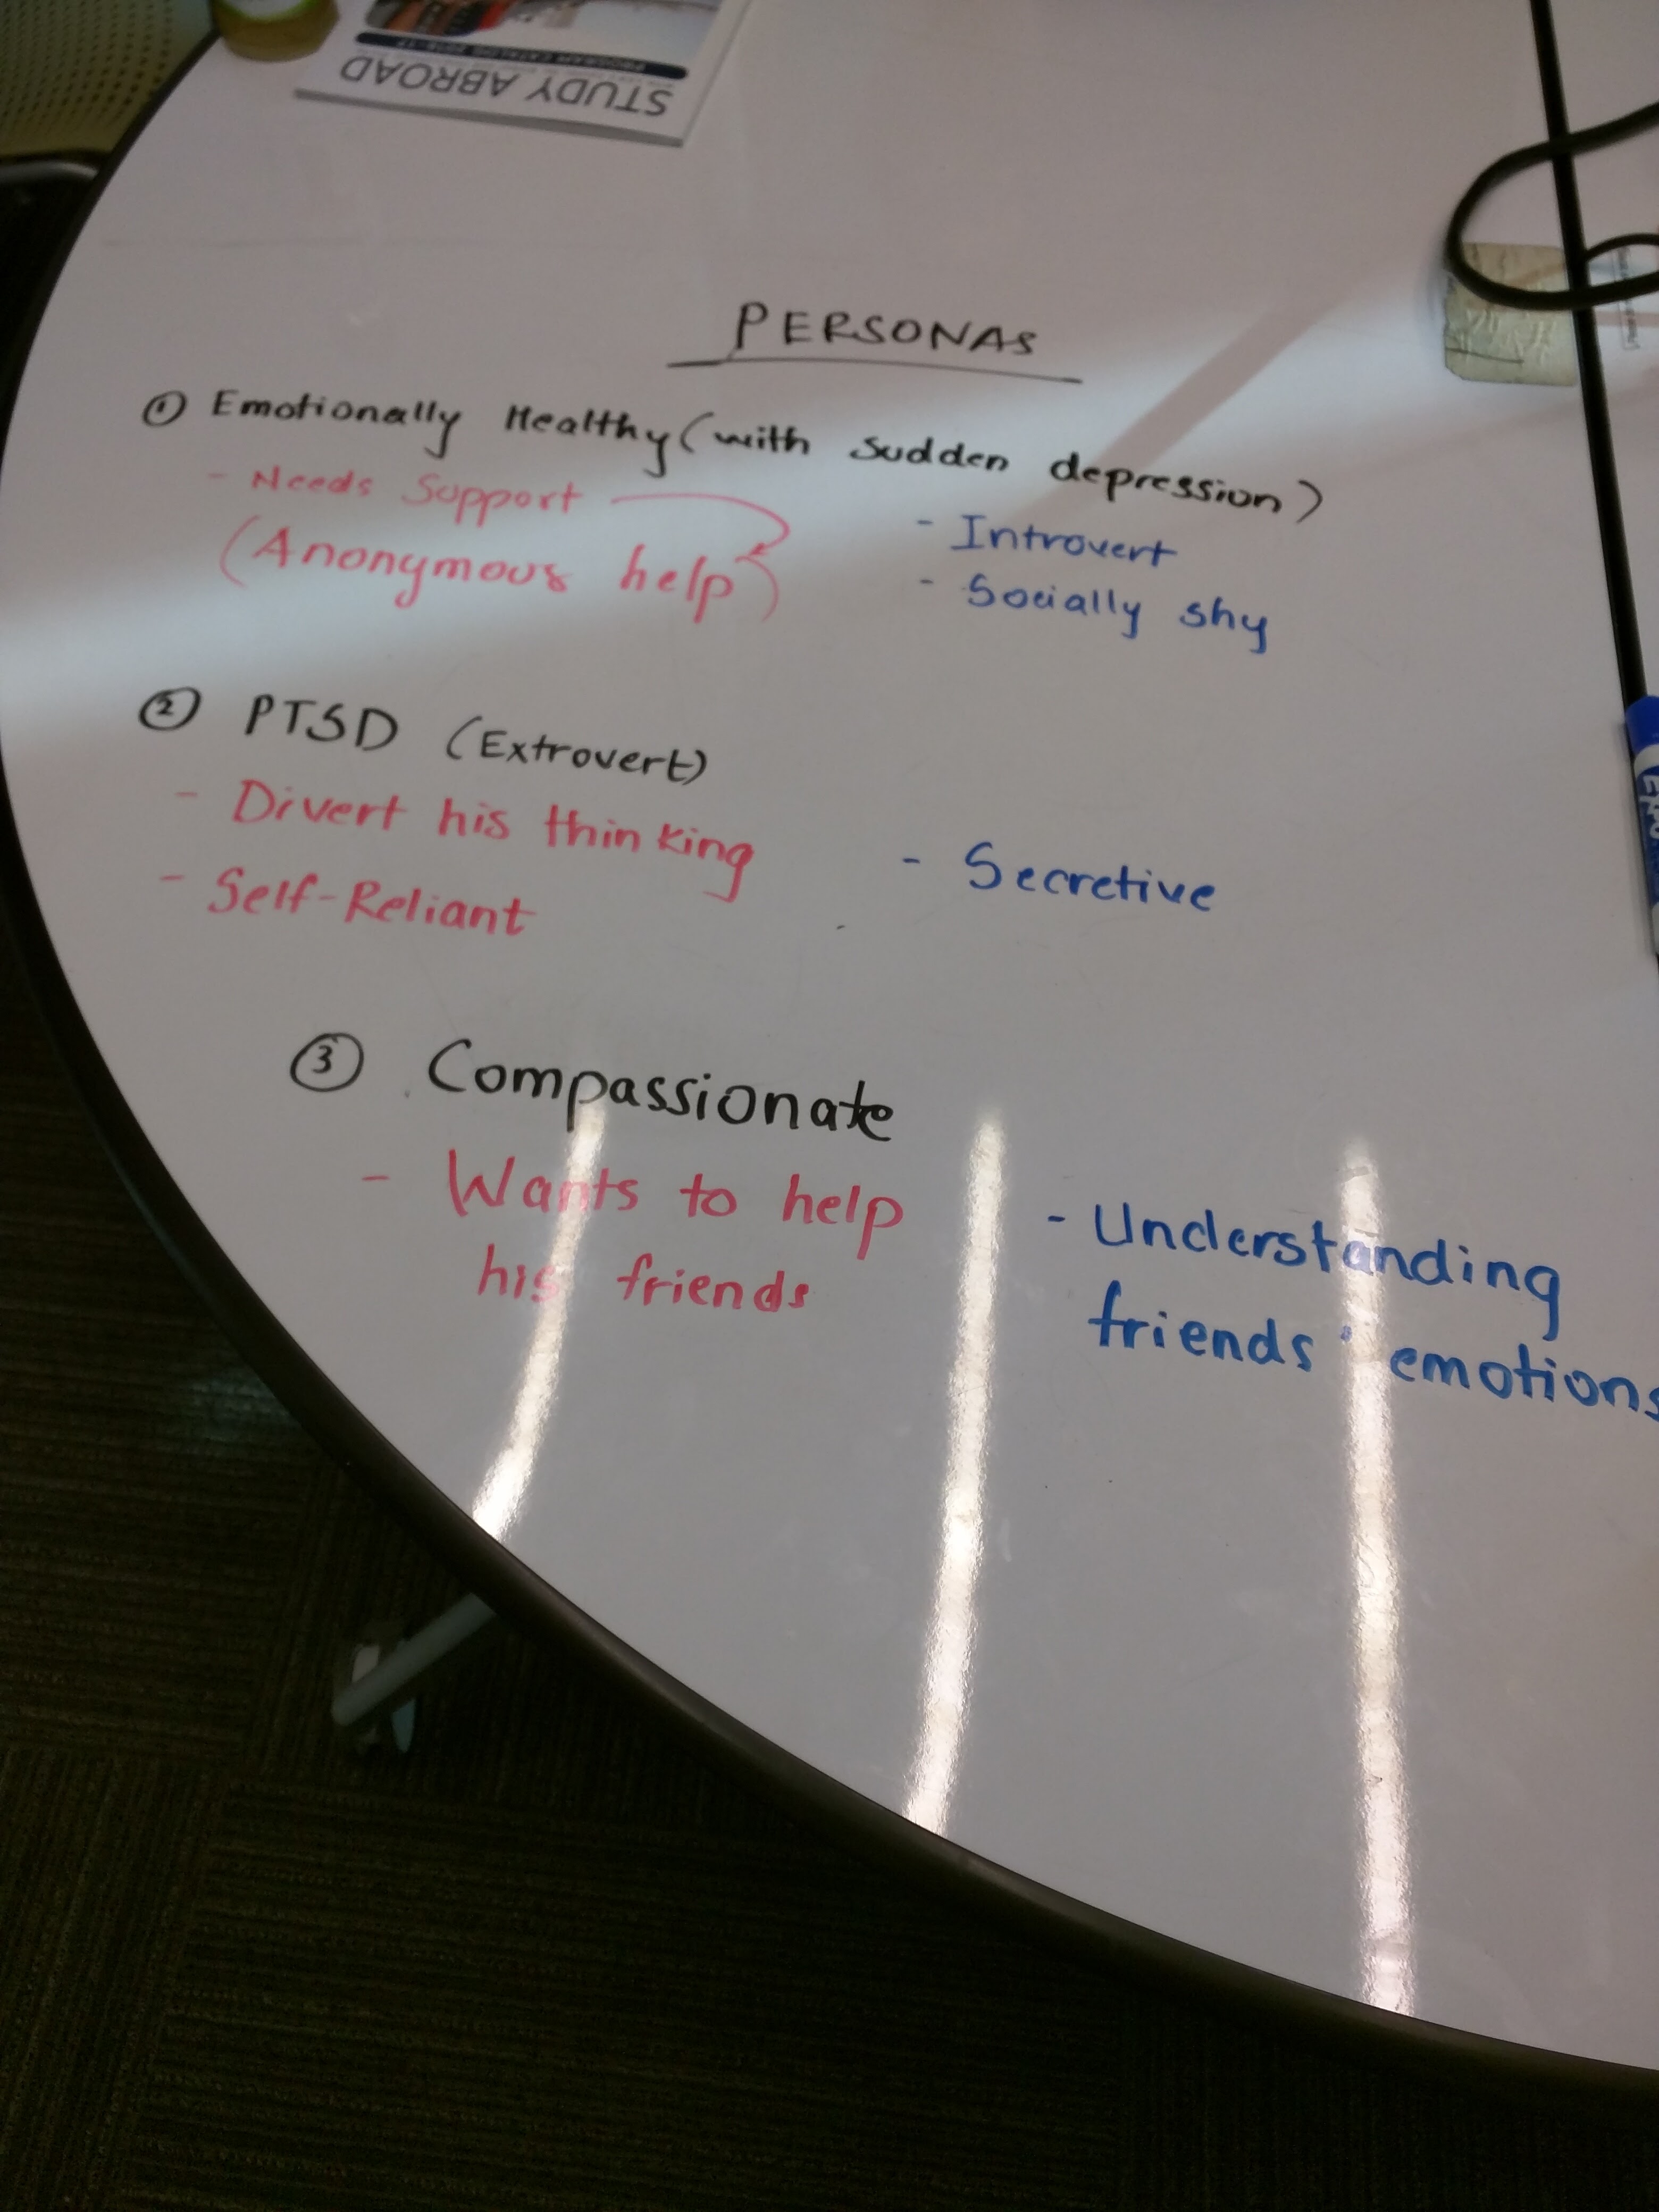 STUDY ABROAD
PROGRAM CATALOG 2016-17
PERSONAS
① Emotionally Healthy (with sudden depression)
- Needs Support
(Anonymous help)
- Introvert
- Socially shy
② PTSD (Extrovert)
- Divert his thinking
- Self-Reliant
- Secretive
③ Compassionate
- Wants to help
his friends
- Understanding
friends' emotions
EXPO